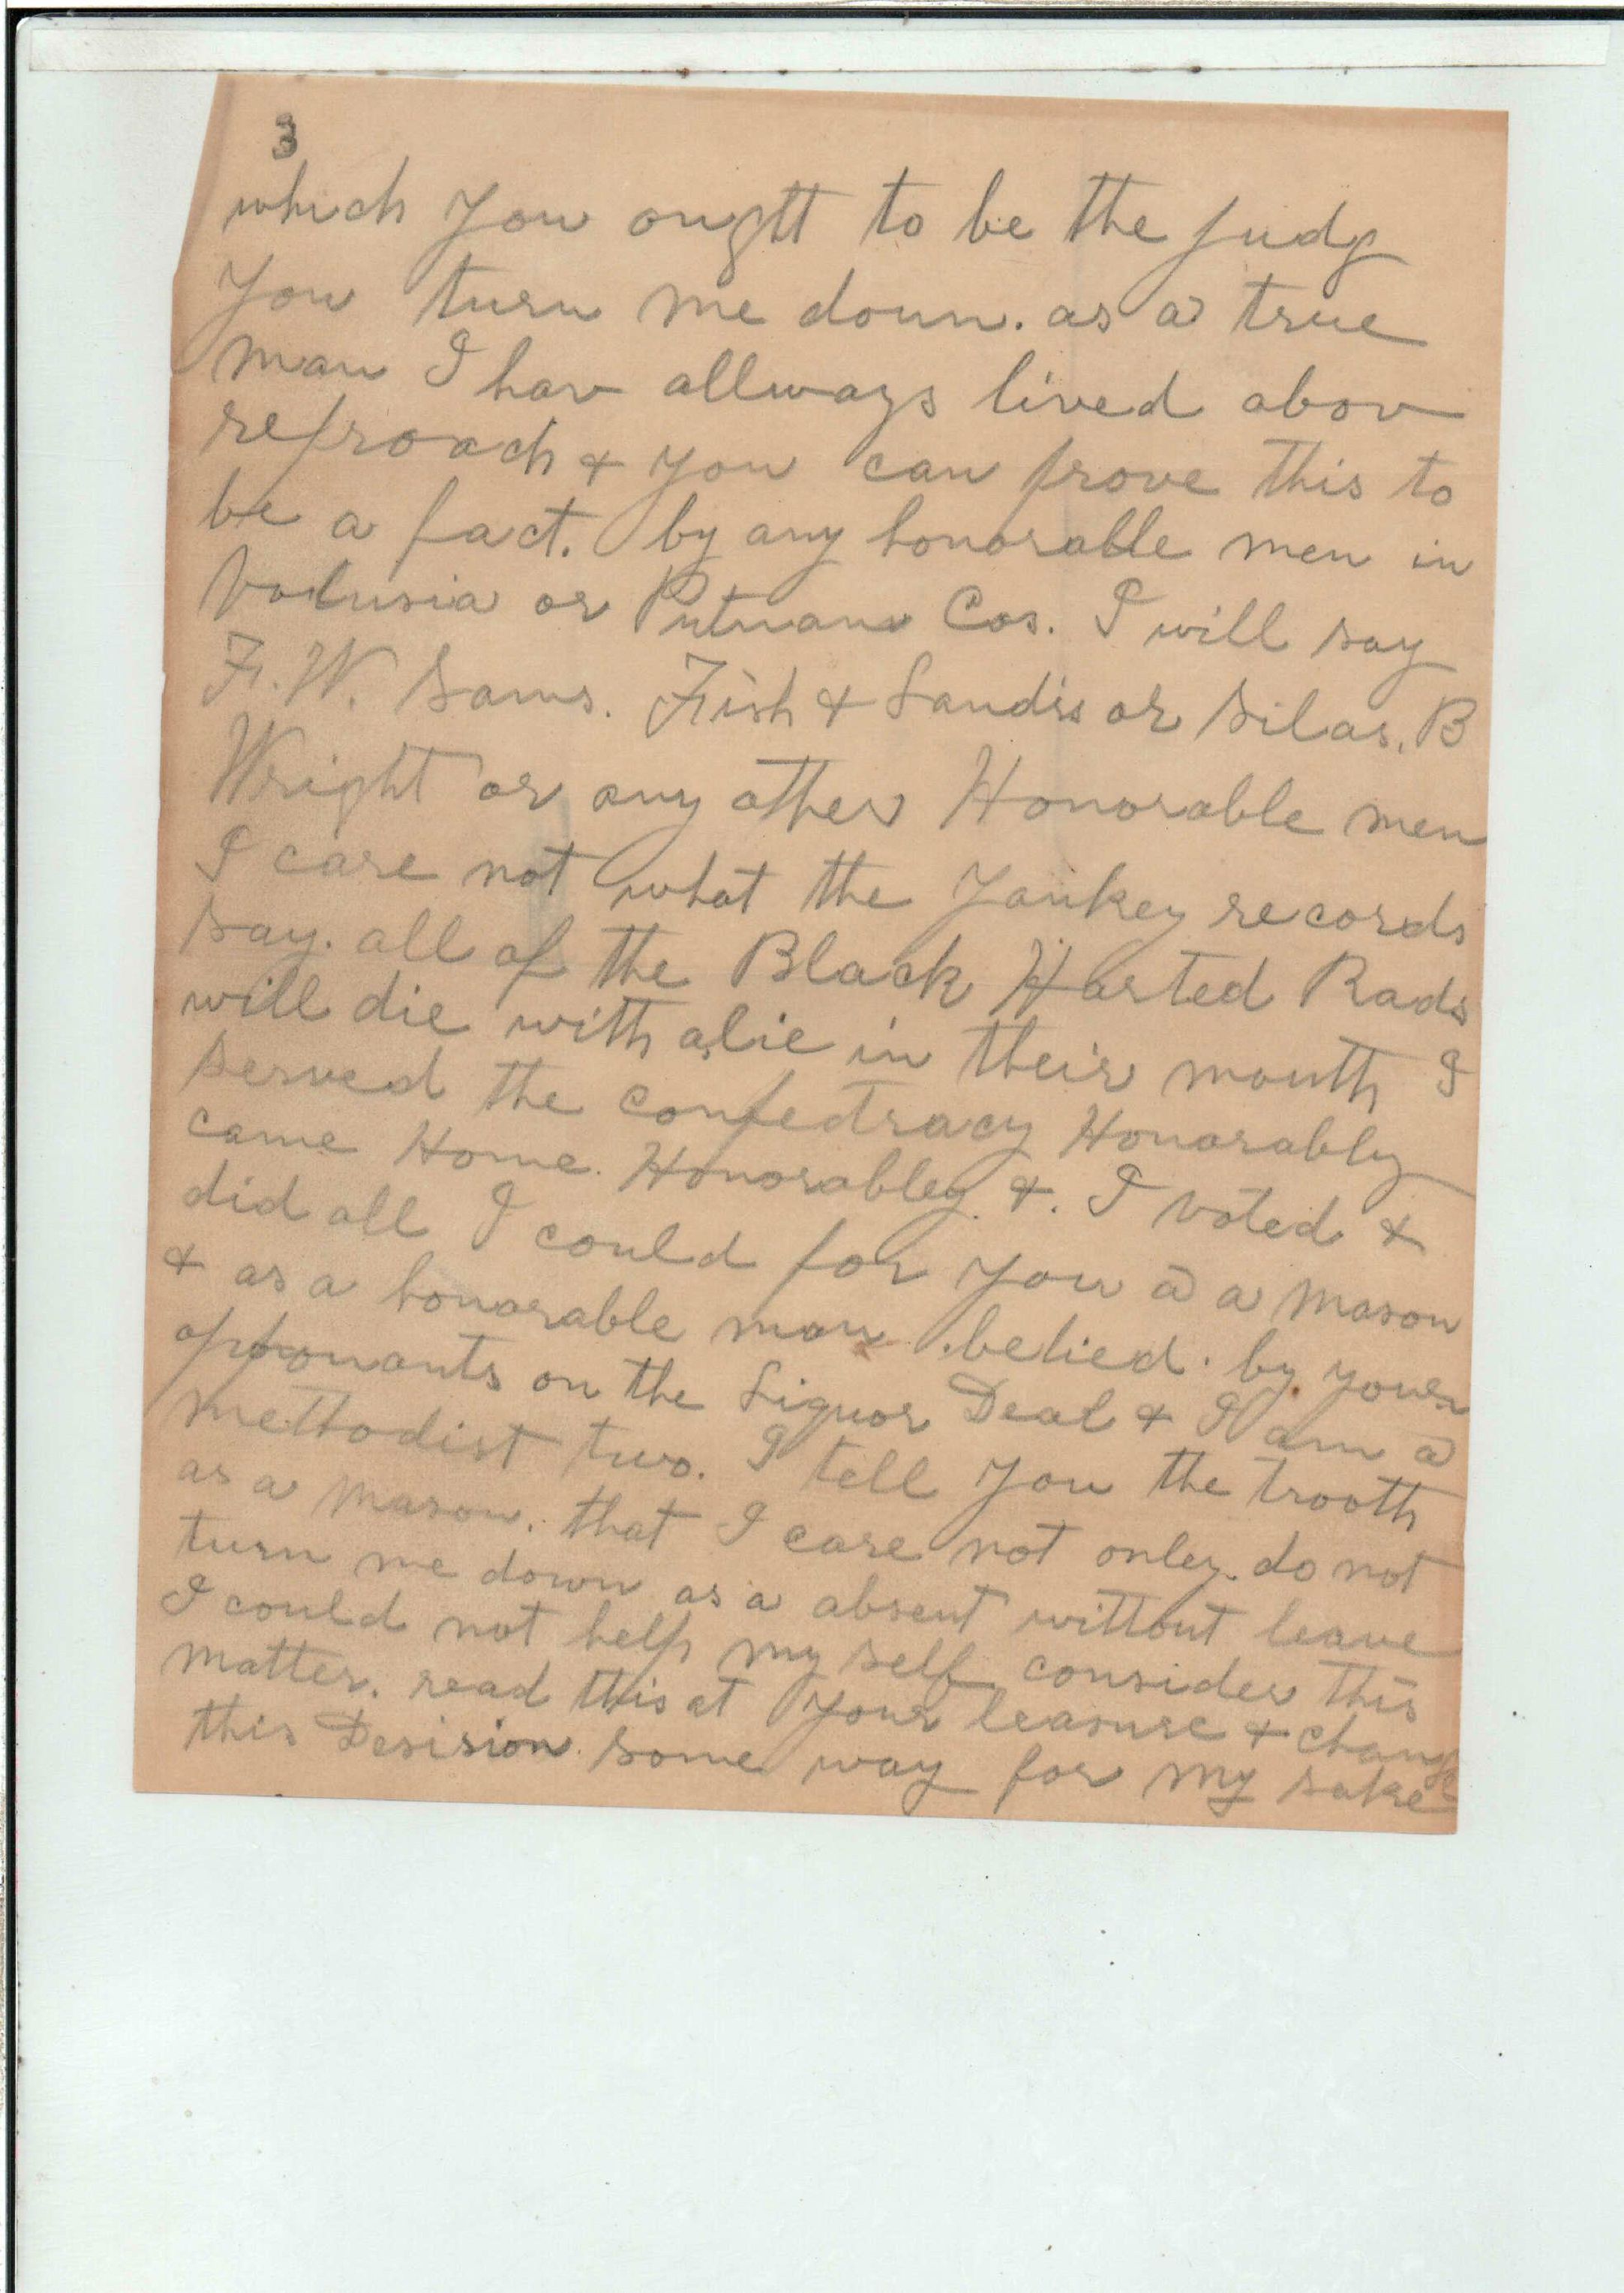 3
which you ougtt to be the judg
you turn me doun. as a true
man I hav allways lived abov
reproach & you can prove this to
be a fact. by any honorable men in
Volusia or Putnam Cos. I will say
F. W. Sams. Fish & Landis or Silas. B
Wright or any other Honorable men
I care not what the Yankey records
say. all of the Black Harted Rads
will die with a lie in their mouth I
served the confedracy Honorably
came Home. Honorabley. &. I voted &
did all I could for you a a mason
& as a honorable man. belied. by your
opponants on the Liquor Deal & I am a
mettodist two. I tell you the trooth
as a mason. that I care not onley. do not
turn me down as a absent without leave
I could not help my self consider this
matter. read this at your leasure & change
this Desision some way for my sake